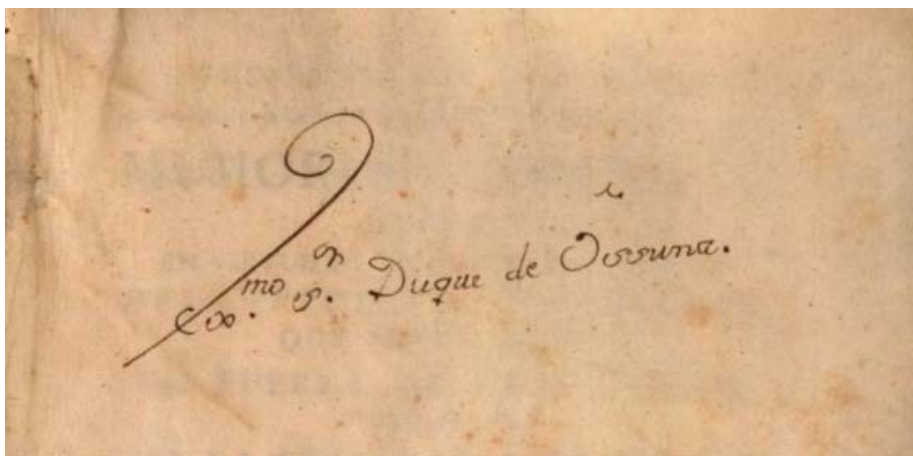 Ex.mo S.r Duque de Ossuna.